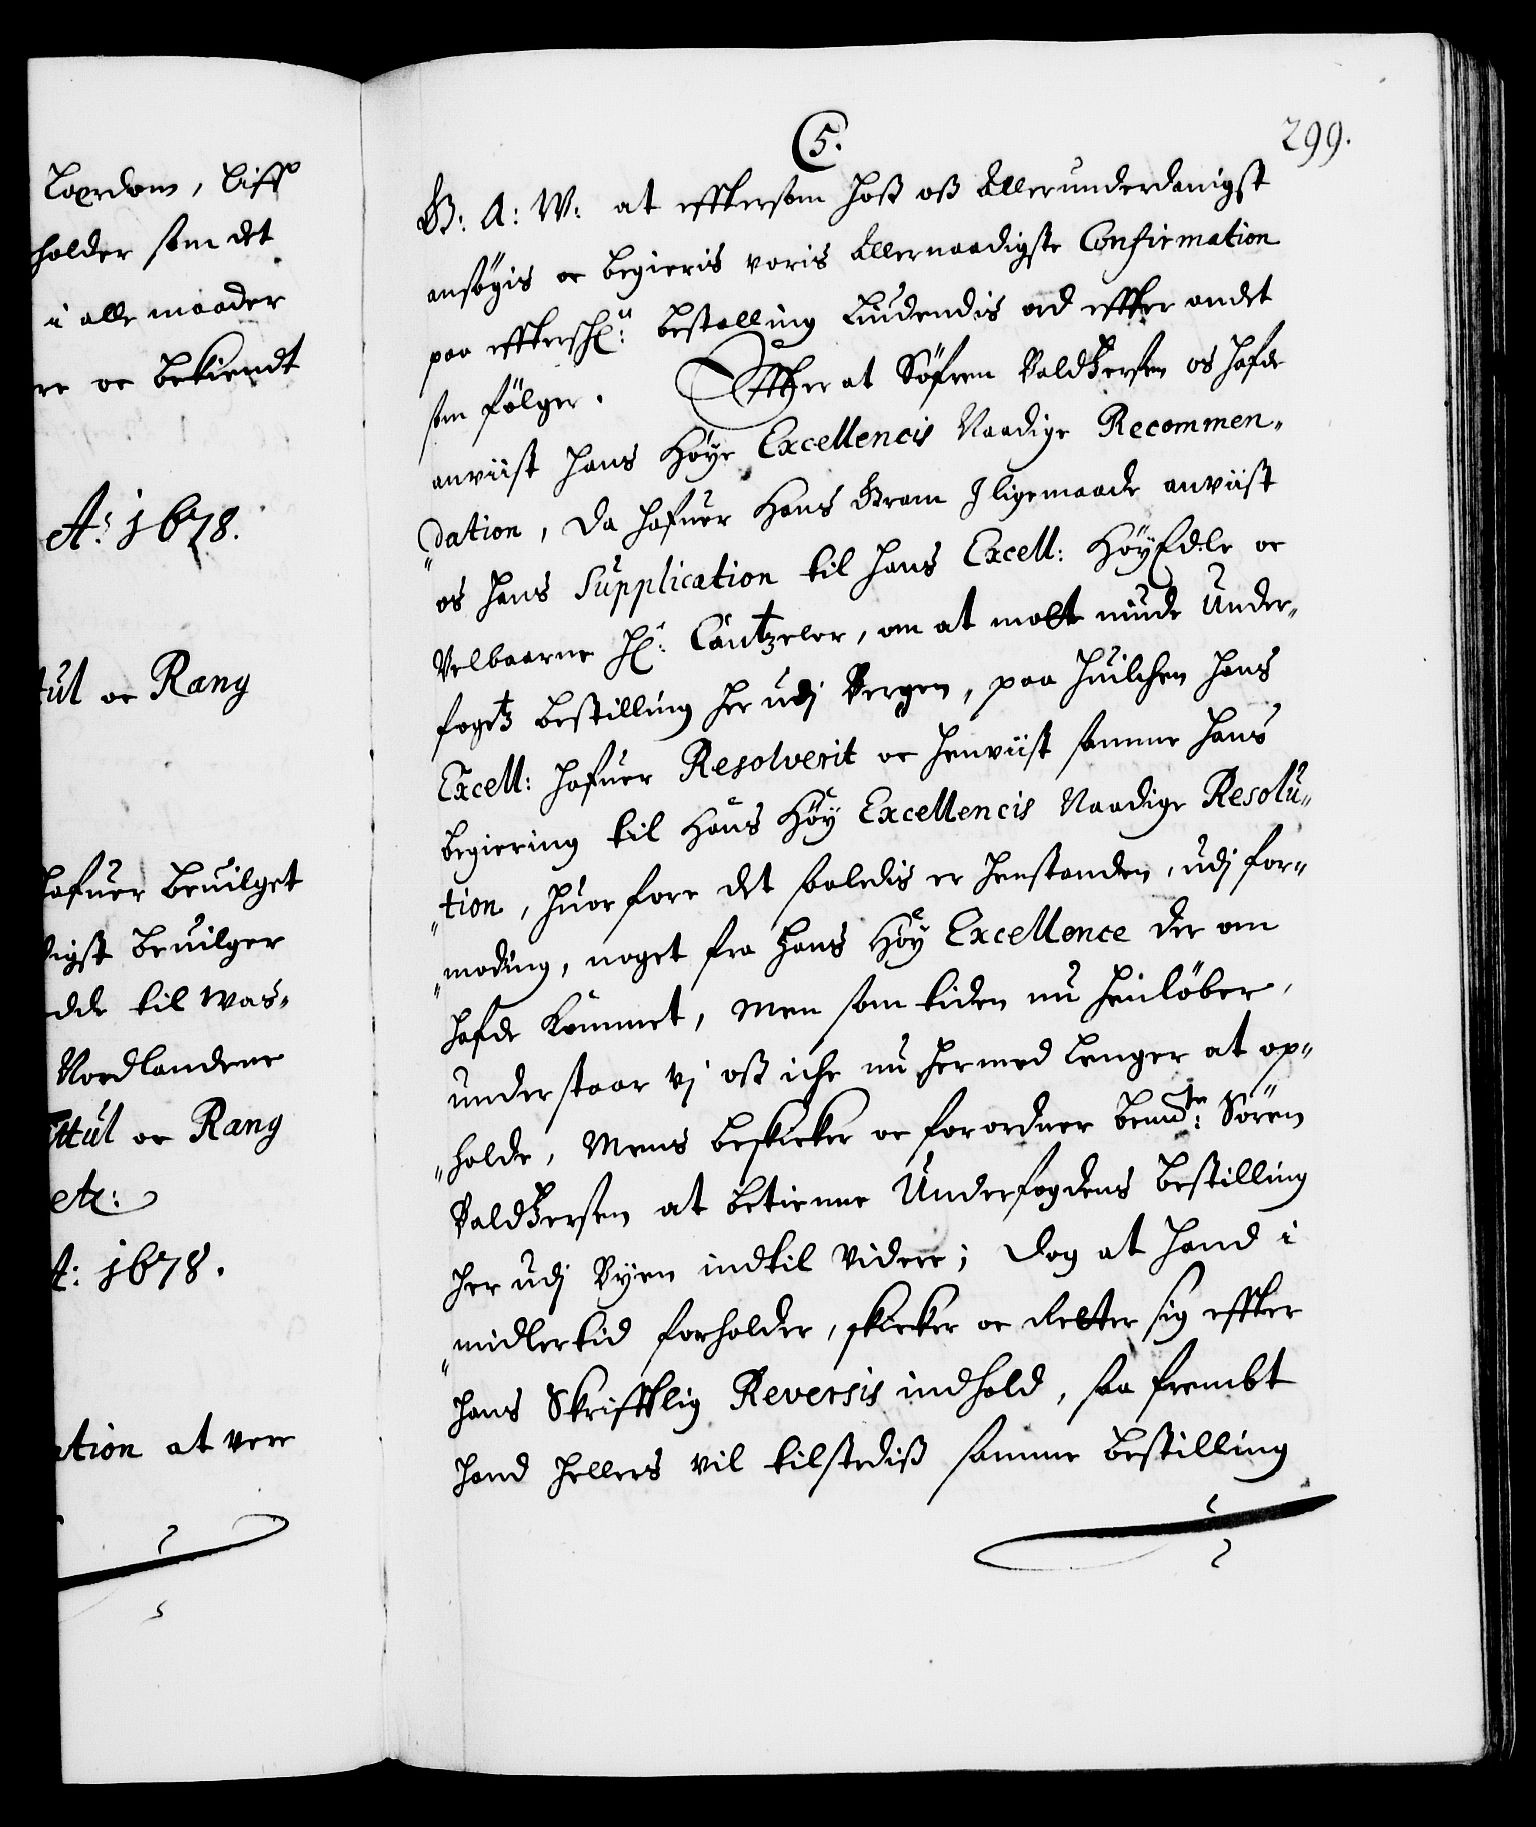 Lærdom, Liff
holder som det
i alle maader
re oc bekiendt
Aº 1678.
tul oc Rang
hafuer beuilget
digst beuilger
dde til was-
Nordlandene
Tittul oc Rang
etc:
A: 1678.
ation at vere
C5.
299.
G: A: W: at effterson hoß oß Allerunderdanigst
ansøgis oc begieris voris Allernaadigste Confirmation
paa effterschr: bestalling Liudendis ord effter andet
som følger. Effter at Söfren Baldtzersen os hafde
anviist hans Høye Excellencis Naadige Recommen-
dation, da hafuer Hans Gram Iligemaade anviist
os hans Supplication til hans Excell: HøyEdle oc
Velbaarne Hr: Cantzeler, om at motte niude Under-
fogetz bestilling her udj Bergen, paa huilchen hans
Excell: hafuer Resolverit oc henviist samme hans
begiering til Hans Høy Excellencis Naadige Resolu-
tion, huorfore det saaledis er henstanden, udj for-
moding, noget fra Hans Høy Excellence der om
hafde kommet, Men som tiden nu henløber,
understaar vj oß iche nu hermed lenger at op-
holde, Mens beskicker oc forordner bemdte: Sören
Baldtzersen at betienne Underfogdens bestilling
her udj Byen indtil videre; dog at hand i
midlertid forholder, skicker oc retter sig effter
hans Skrifftlig Reversis indhold, saa frembt
hand hellers vil tilstediß samme bestilling